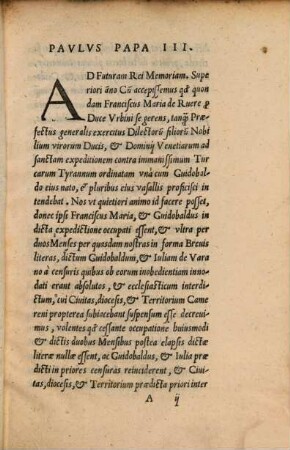 PAVLVS PAPA III.
AD Futuram Rei Memoriam. Supe
riori āno Cū accepissemus qđ quon
dam Franciscus Maria de Ruere ꝑ
Duce Vrbini se gerens, tanq̃ Præ
fectus generalis exercitus Dilectorū filiorū Nobi
lium virorum Ducis, & Dominij Venetiarum ad
sanctam expeditionem contra immanissimum Tur
carum Tyrannum ordinatam vnà cum Guidobal
do eius nato, & pluribus eius vasallis proficisci in
tendebat. Nos vt quietiori animo id facere posset,
donec ipsi Franciscus Maria, & Guidobaldus in
dicta expeditione occupati essent, & vltra per
duos Menses per quasdam nostras in forma Breuis
literas, dictum Guidobaldum, & Iuliam de Vara
no à censuris quibus ob eorum inobedientiam inno
dati erant absolutos, & ecclesiasticum interdi
ctum,'cui Ciuitas, diocesis, & Territorium Came
reni propterea subiacebant suspensum esse decreui
mus, volentes qđ cessante occupatione huiusmodi
& dictis duobus Mensibus postea elapsis dictæ
literæ nullæ essent, ac Guidobaldus, & Iulia præ
dicti in priores censuras reinciderent, & Ciui
tas, diocesis, & Territorium prædicta priori inter
A ij